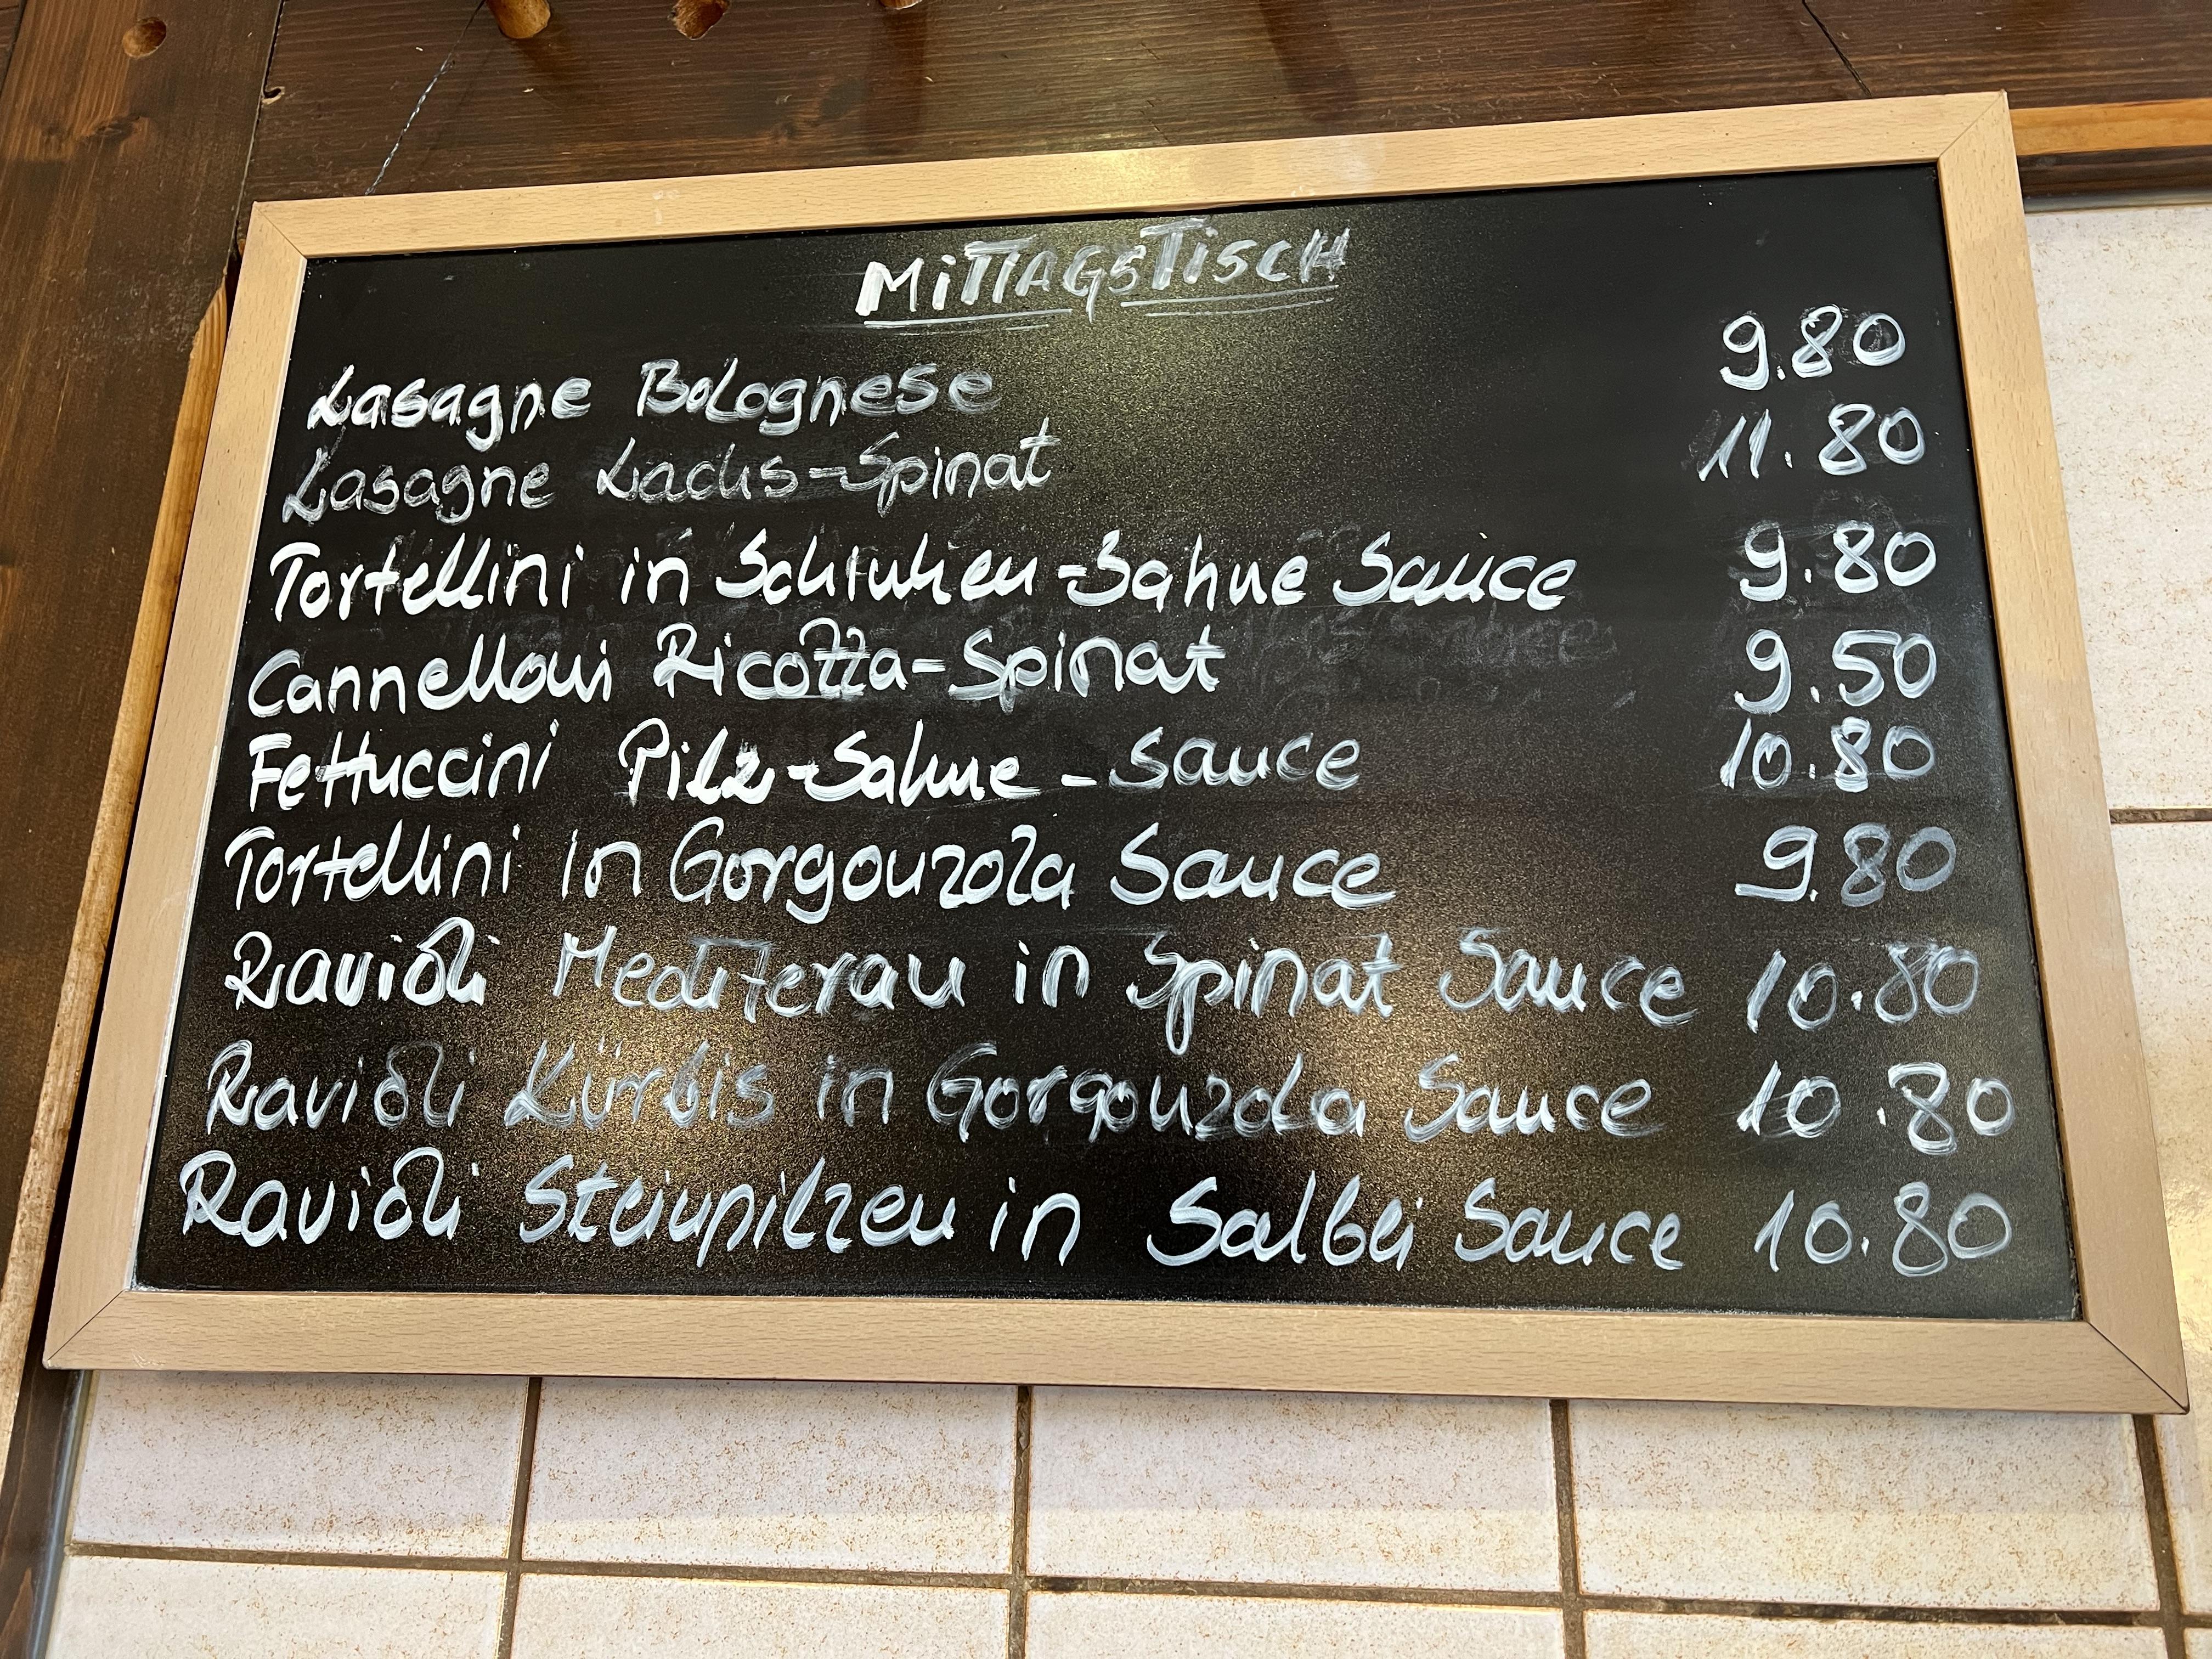 MiTTAGSTiSCH
Lasagne Bolognese 9.80
Lasagne Lachs-Spinat 11.80
Tortellini in Schinken-Sahne Sauce 9.80
Cannelloni Ricotta-Spinat 9.50
Fettuccini Pilz-Sahne-Sauce 10.80
Tortellini in Gorgonzola Sauce 9.80
Ravioli Mediteran in Spinat Sauce 10.80
Ravioli Kürbis in Gorgonzola Sauce 10.80
Ravioli Steinpilzen in Salbei Sauce 10.80